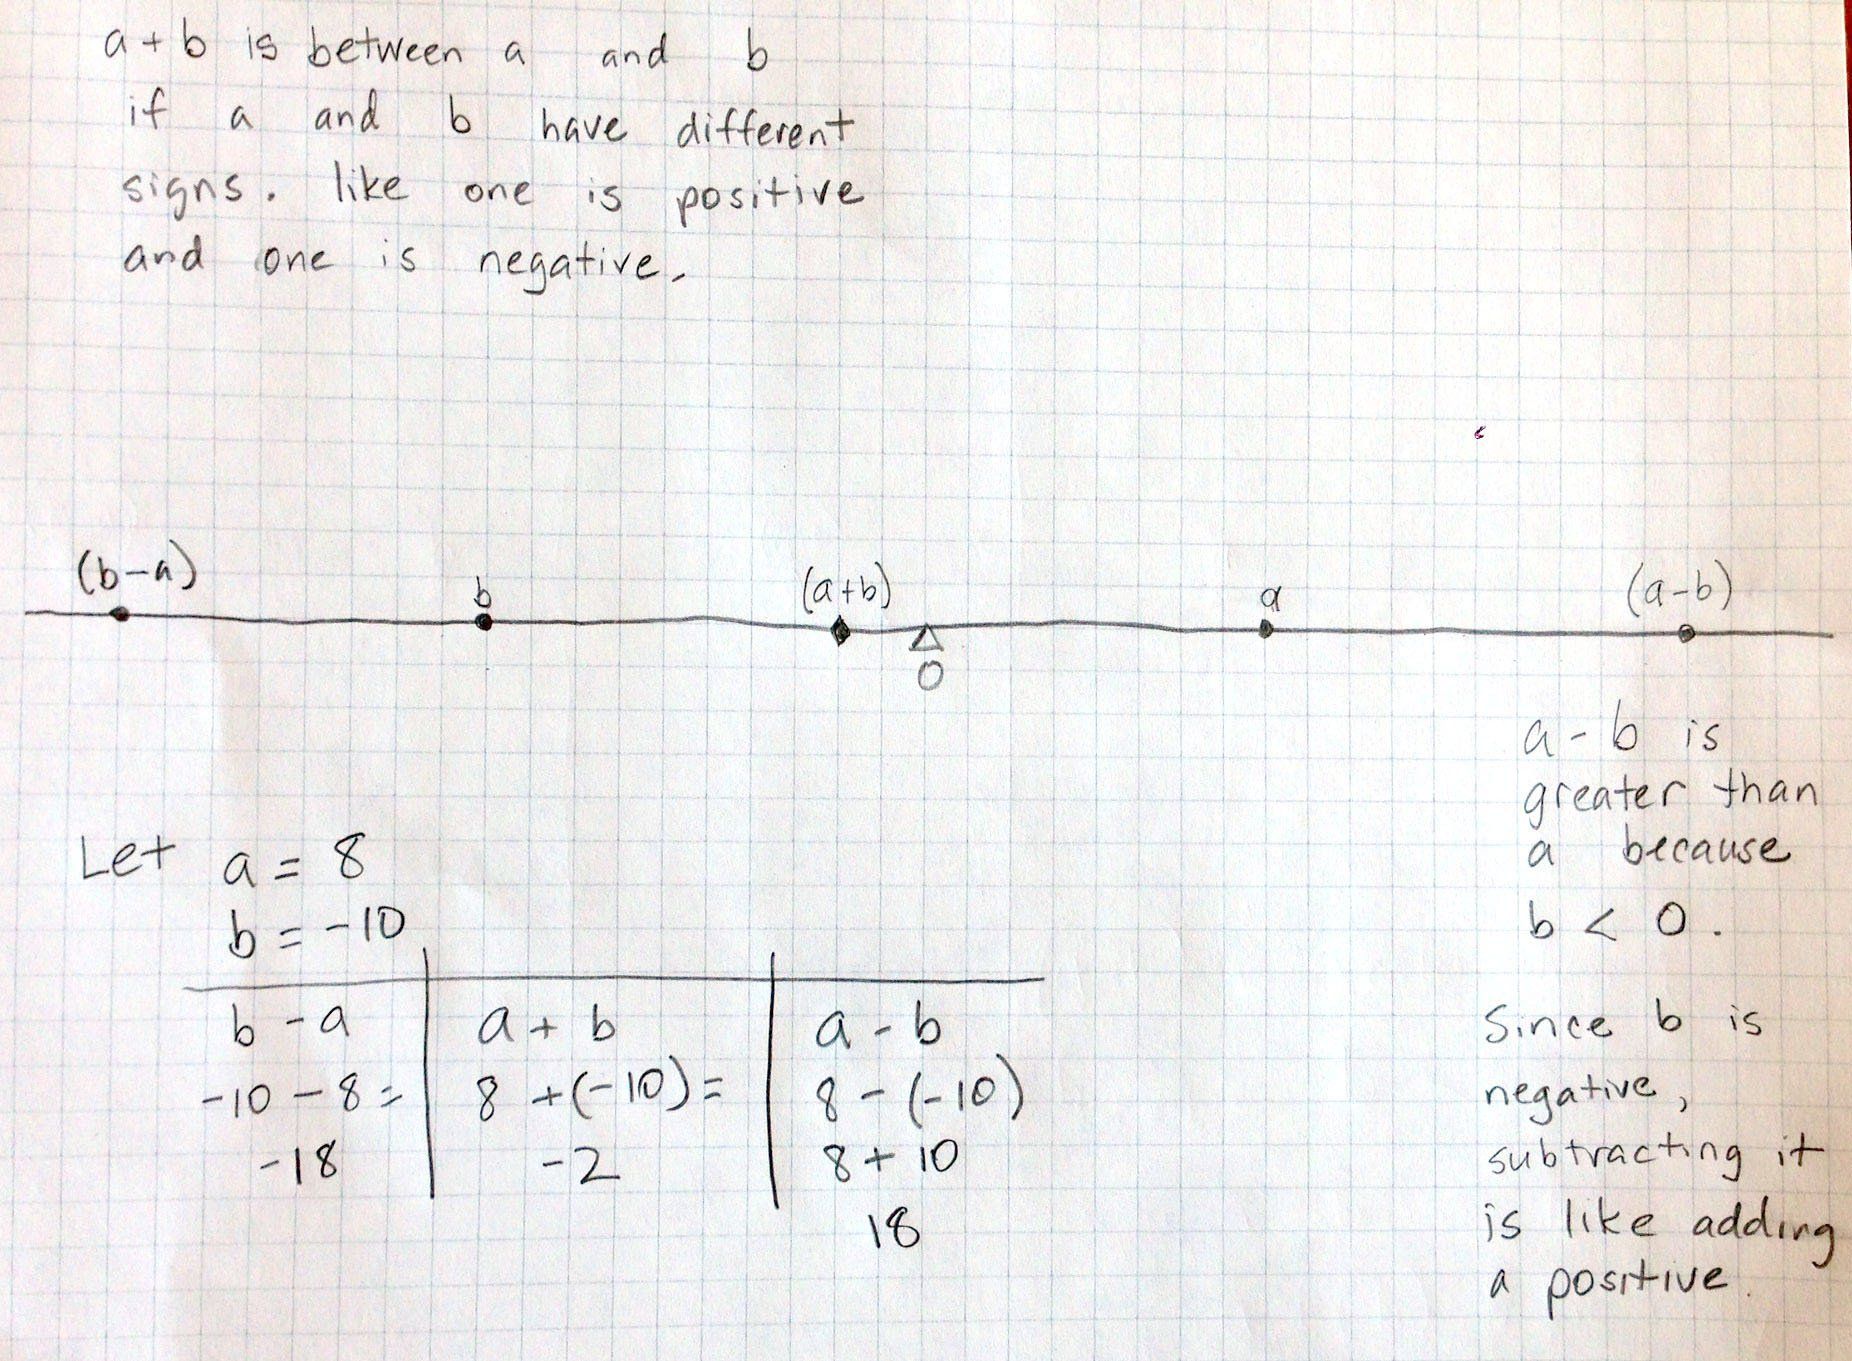 a + b is between a and b
if a and b have different
signs. like one is positive
and one is negative.
(b-a) b (a+b) a (a-b)
0
a - b is
greater than
a because
b < 0.
Since b is
negative,
subtracting it
is like adding
a positive.
Let a = 8
b = -10
b - a a + b a - b
-10 - 8 = 8 + (-10) = 8 - (-10)
-18 -2 8 + 10
18